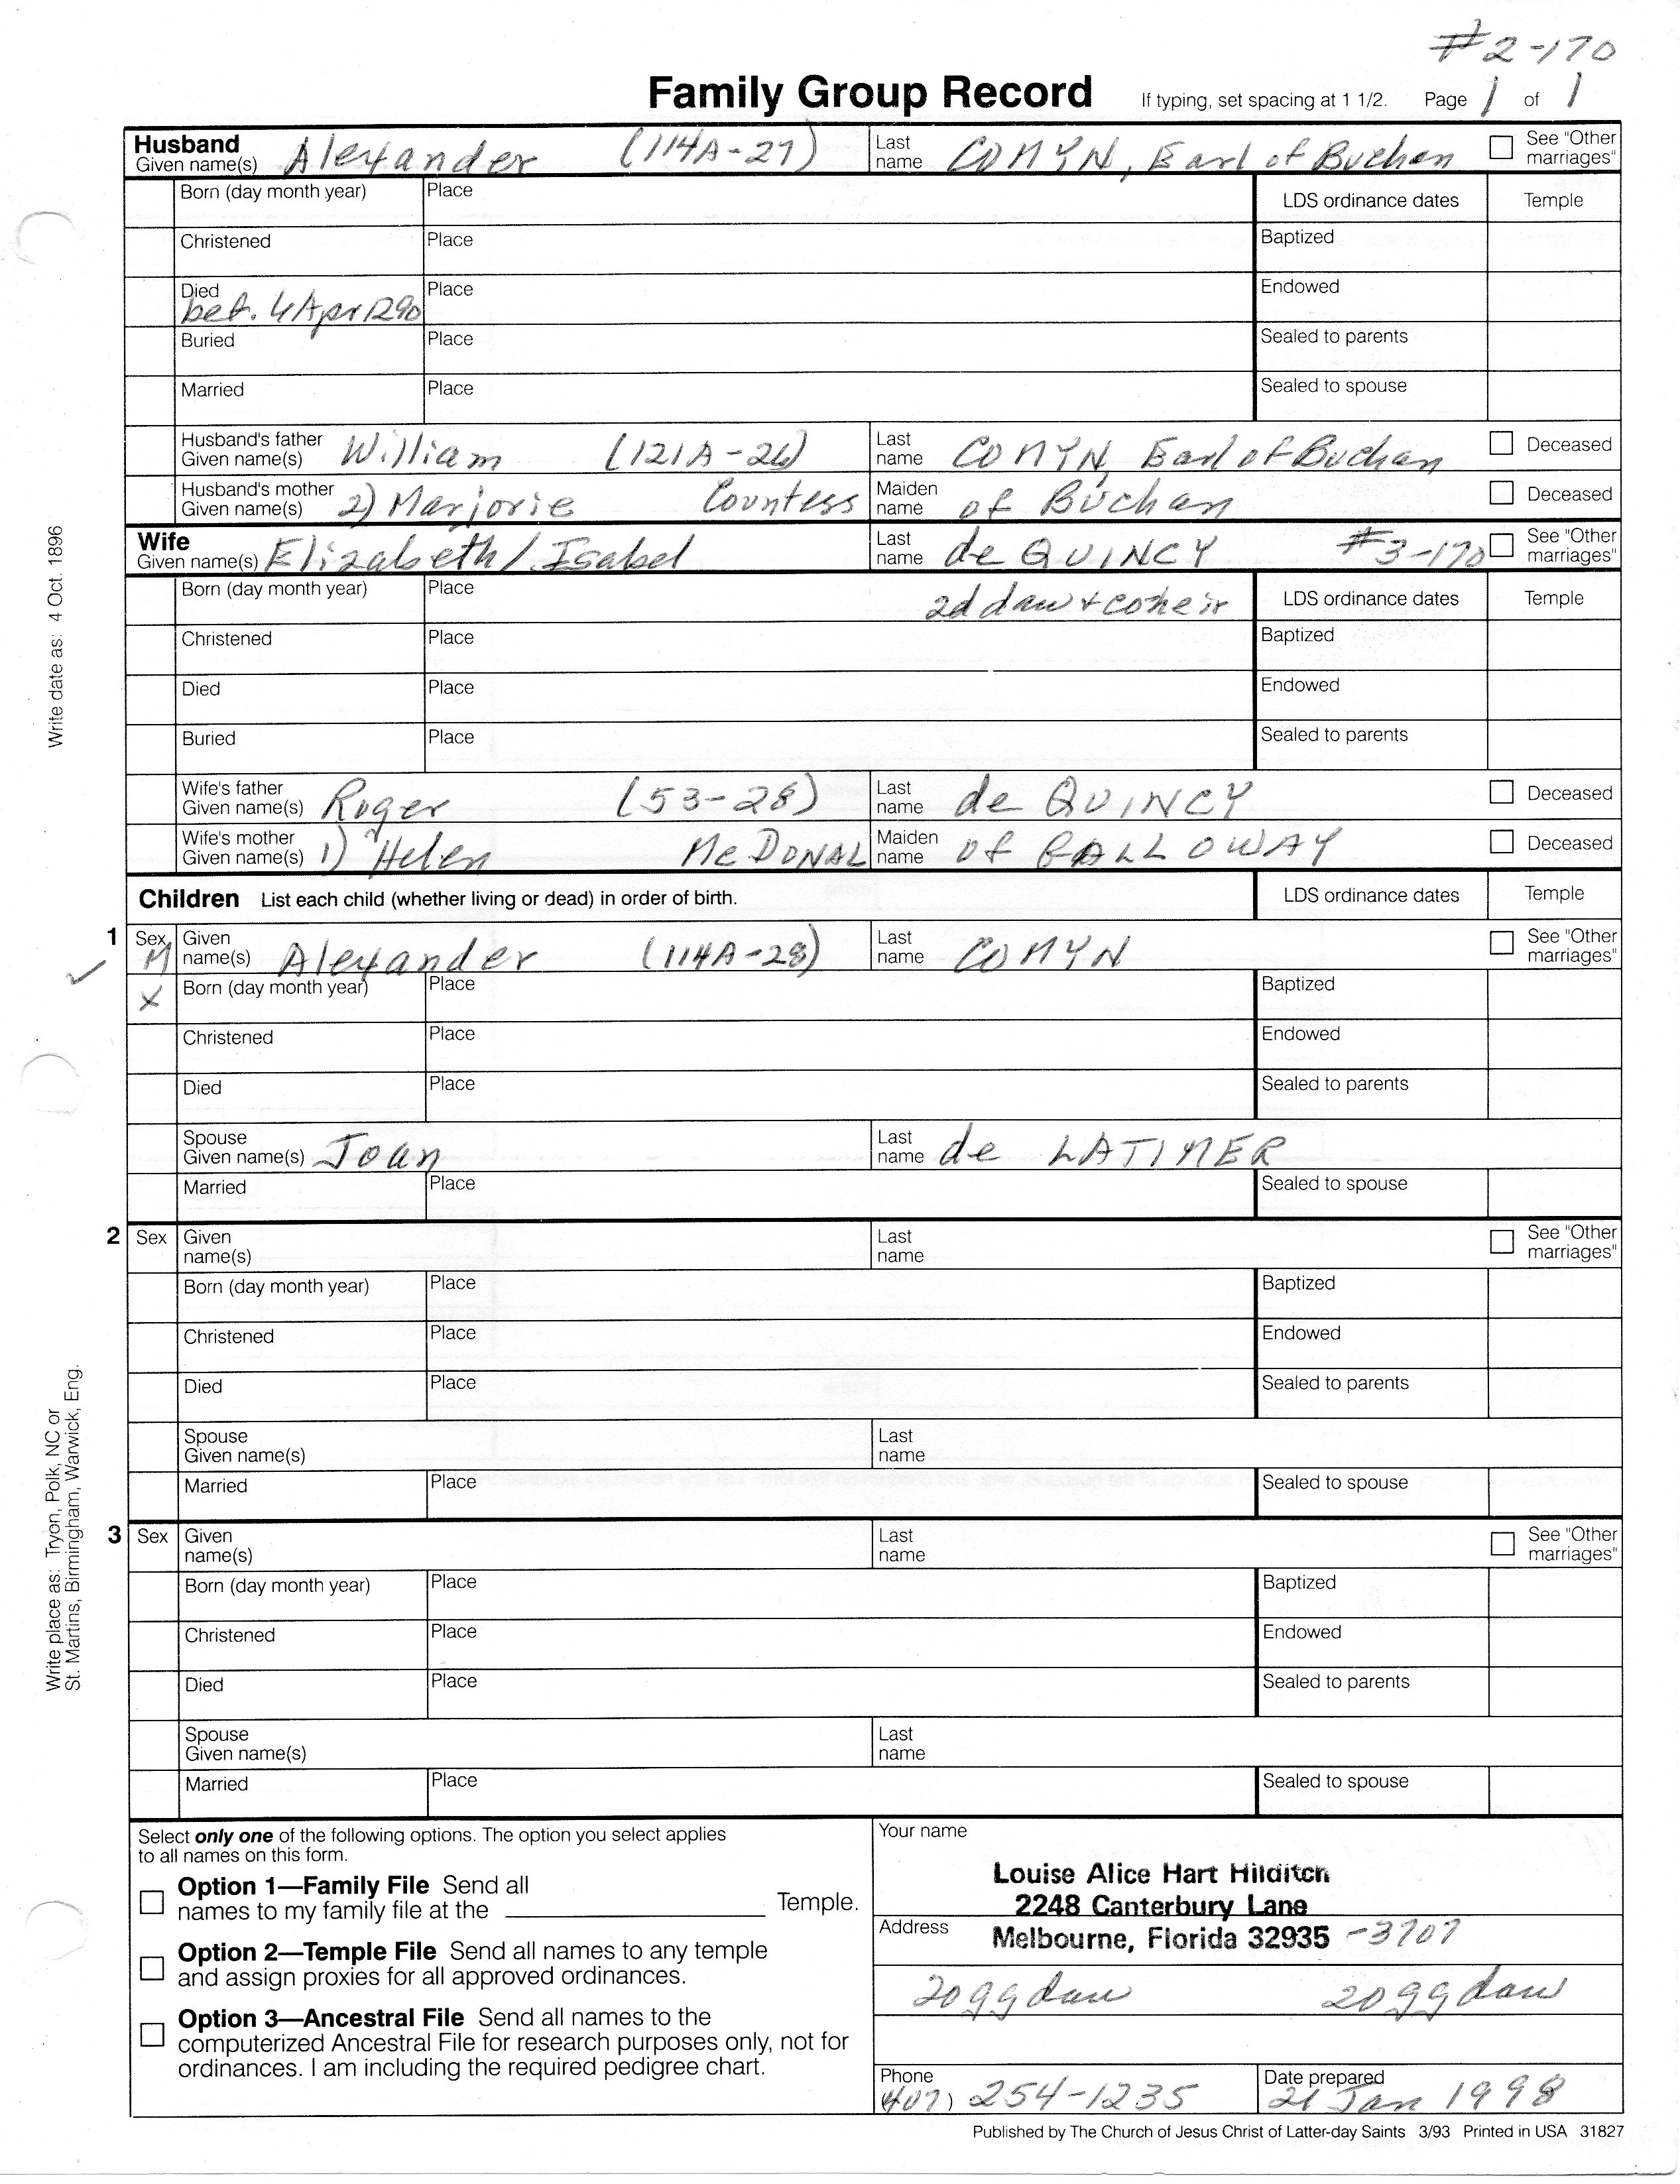 #2-170
Family Group Record If typing, set spacing at 1 1/2. Page 1 of 1
Husband
Given name(s) Alexander (114A-27) Last name COMYN, Earl of Buchan See "Other marriages"
Born (day month year) Place LDS ordinance dates Temple
Christened Place Baptized
Died bef. 6 Apr 1290 Place Endowed
Buried Place Sealed to parents
Married Place Sealed to spouse
Husband's father Given name(s) William (121A-26) Last name COMYN, Earl of Buchan Deceased
Husband's mother Given name(s) 2) Marjorie Countess Maiden name of Buchan Deceased
Wife
Given name(s) Elizabeth / Isabel Last name de QUINCY #3-170 See "Other marriages"
Born (day month year) Place 2d daw + coheir LDS ordinance dates Temple
Christened Place Baptized
Died Place Endowed
Buried Place Sealed to parents
Wife's father Given name(s) Roger (53-28) Last name de QUINCY Deceased
Wife's mother Given name(s) 1) Helen McDONAL Maiden name of GALLOWAY Deceased
Children List each child (whether living or dead) in order of birth. LDS ordinance dates Temple
1 Sex M Given name(s) Alexander (114A-28) Last name COMYN See "Other marriages"
X Born (day month year) Place Baptized
Christened Place Endowed
Died Place Sealed to parents
Spouse Given name(s) Joan Last name de LATIMER
Married Place Sealed to spouse
2 Sex Given name(s) Last name See "Other marriages"
Born (day month year) Place Baptized
Christened Place Endowed
Died Place Sealed to parents
Spouse Given name(s) Last name
Married Place Sealed to spouse
3 Sex Given name(s) Last name See "Other marriages"
Born (day month year) Place Baptized
Christened Place Endowed
Died Place Sealed to parents
Spouse Given name(s) Last name
Married Place Sealed to spouse
Select only one of the following options. The option you select applies
to all names on this form.
Option 1—Family File Send all
names to my family file at the Temple.
Option 2—Temple File Send all names to any temple
and assign proxies for all approved ordinances.
Option 3—Ancestral File Send all names to the
computerized Ancestral File for research purposes only, not for
ordinances. I am including the required pedigree chart.
Your name
Louise Alice Hart Hilditch
2248 Canterbury Lane
Address
Melbourne, Florida 32935 -3707
20ggdaw 20ggdaw
Phone (407) 254-1235 Date prepared 21 Jan 1998
Published by The Church of Jesus Christ of Latter-day Saints 3/93 Printed in USA 31827
Write date as: 4 Oct. 1896
Write place as: Tryon, Polk, NC or
St. Martins, Birmingham, Warwick, Eng.